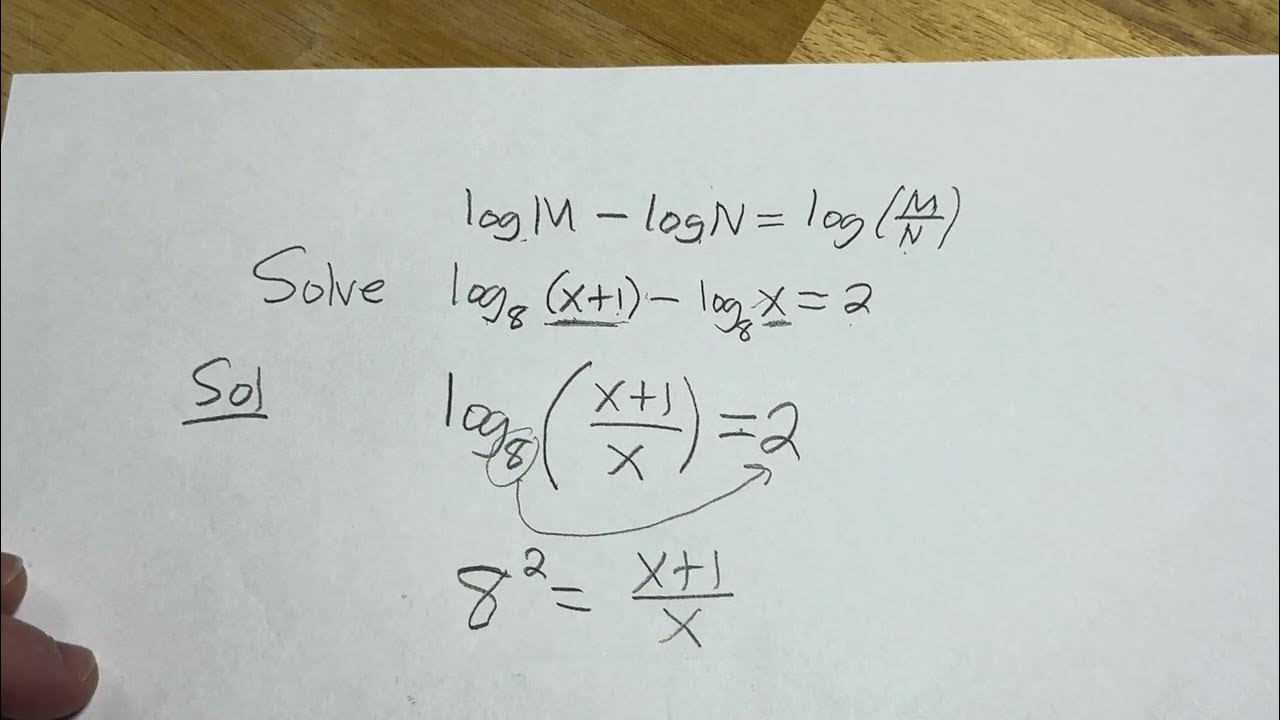 log M - log N = log (M/N)
Solve log₈ (x+1) - log₈ x = 2
Sol log₈ ((x+1)/x) = 2
8² = (x+1)/x